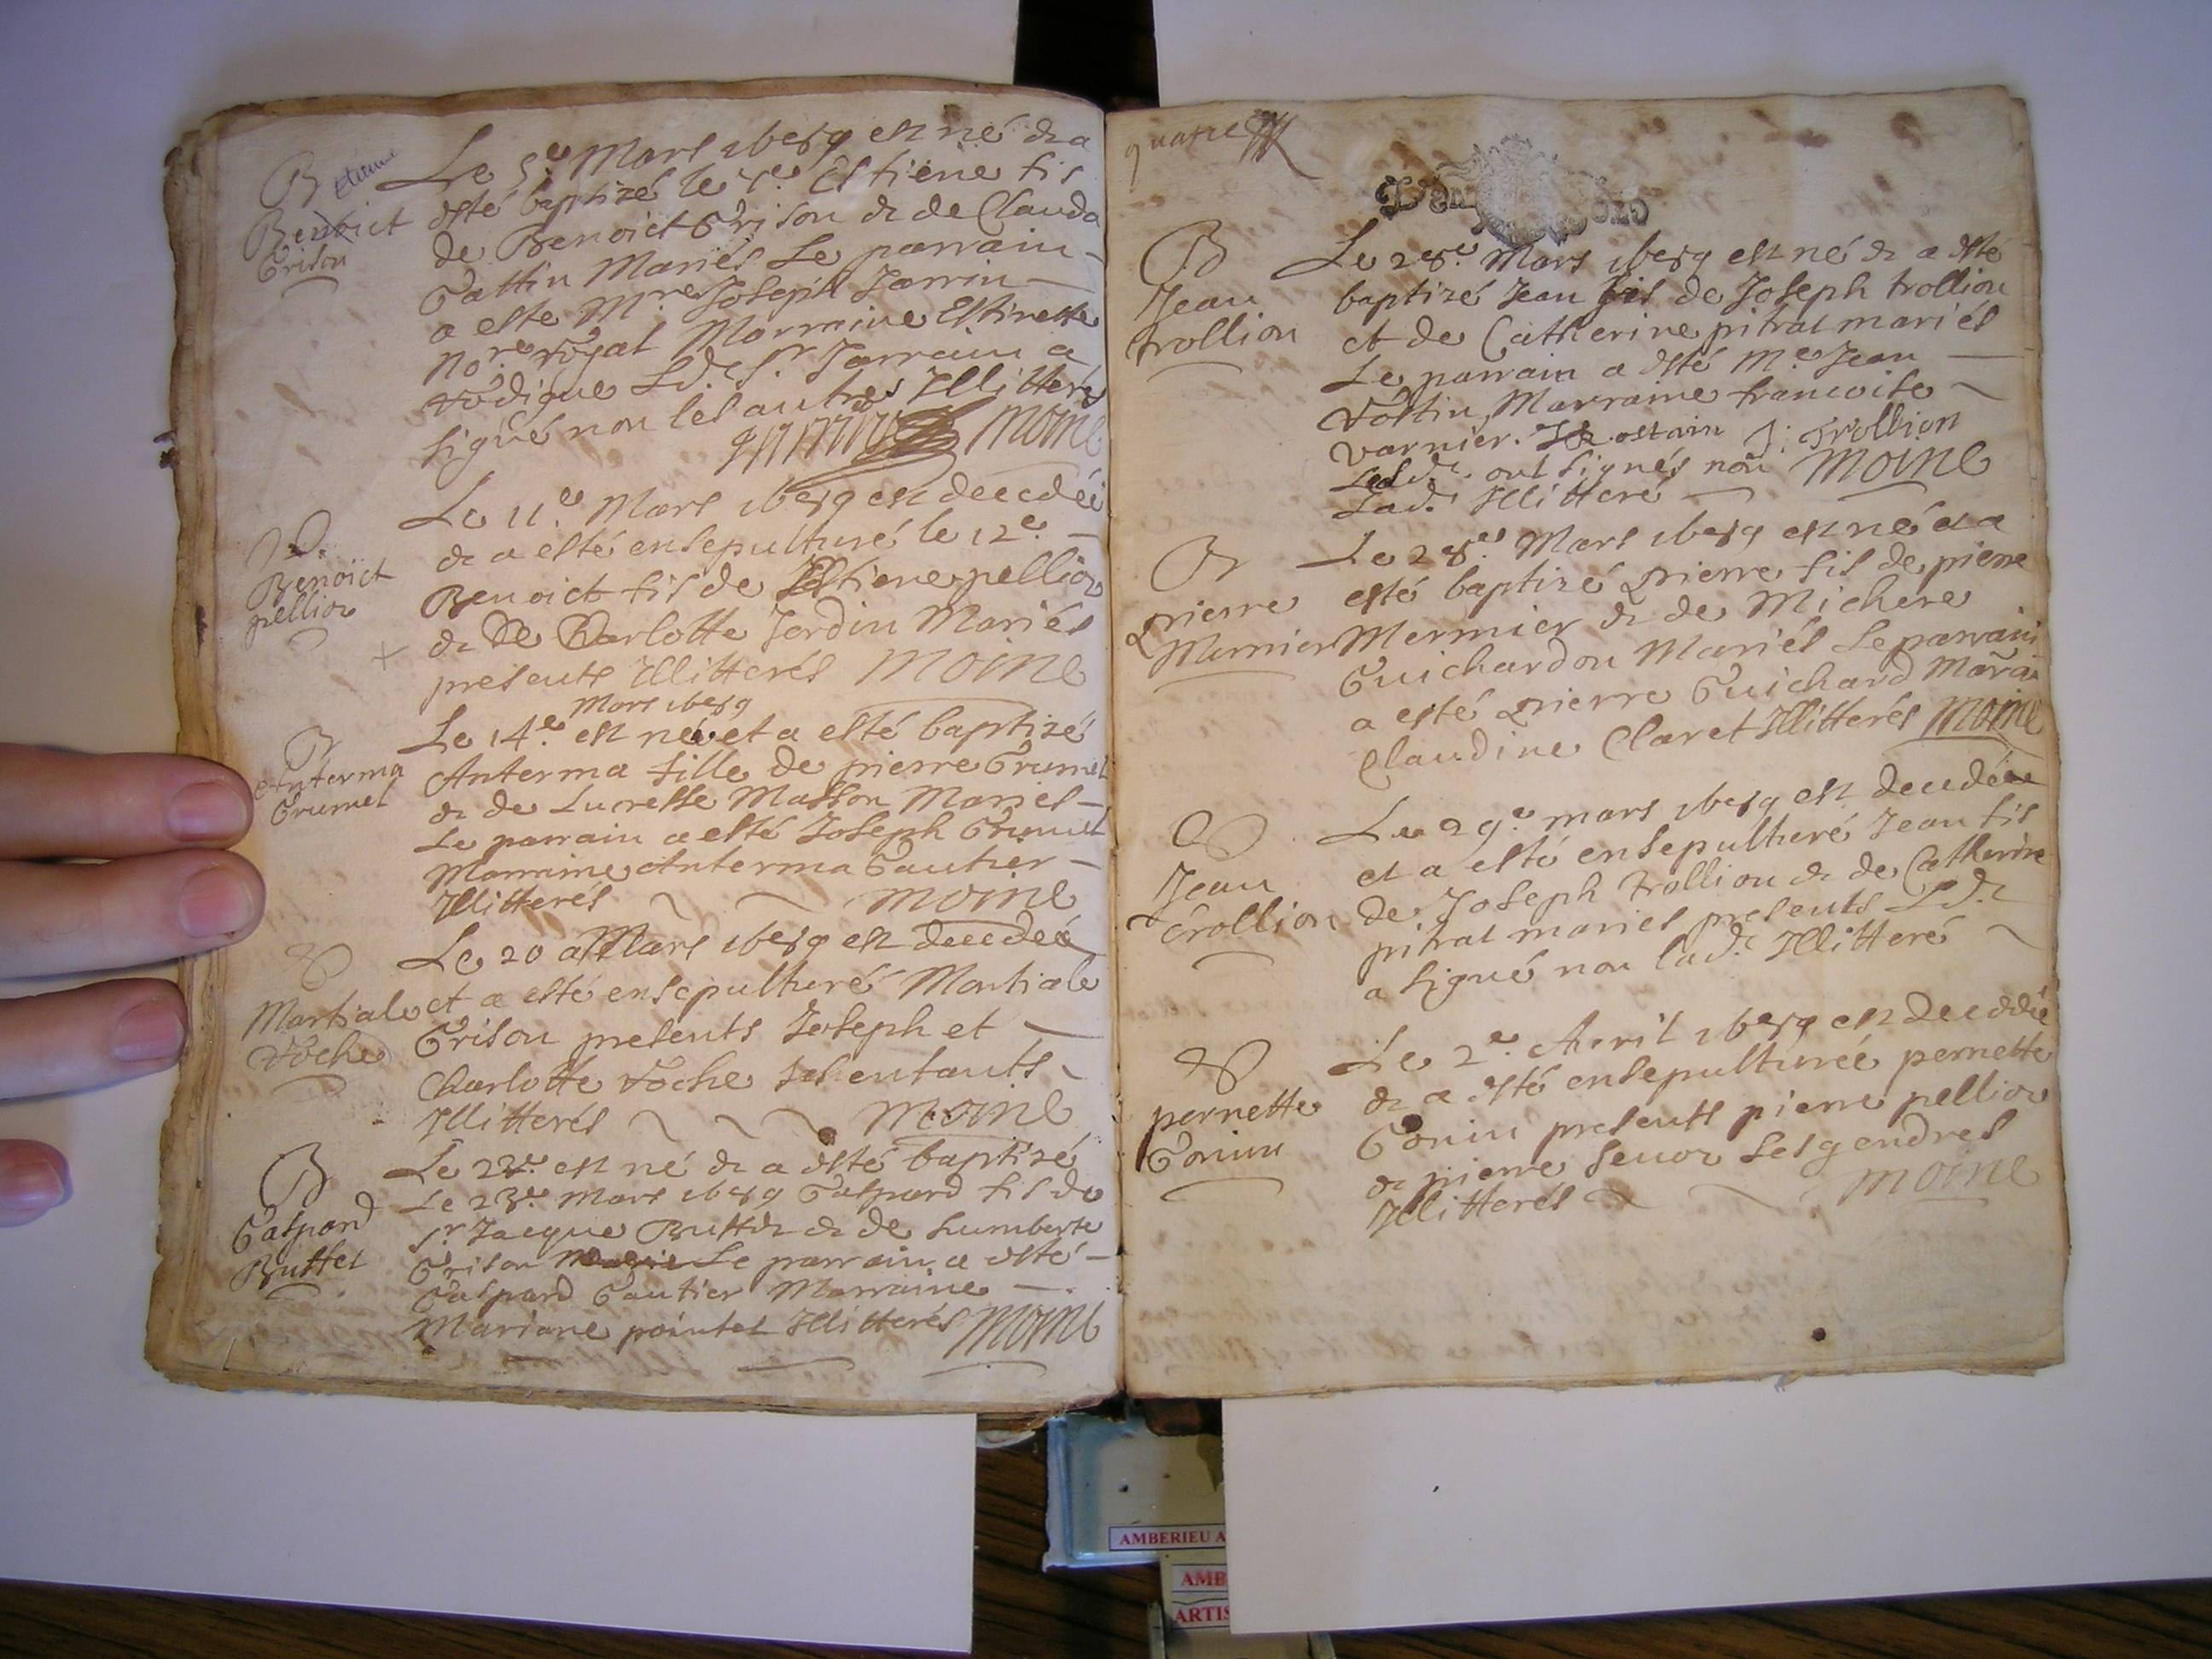 B Etiene
Benoict
Grison
Le 5.e Mars 1689 est né & a
esté baptizé le 7.e Estiene fis
de Benoict Grison & de Clauda
Gattin Mariés Le parrain
a este M.re Joseph Jarrin
No.re Royal Marraine Estinette
Vodigue Ld. Sr. Jarrain a
signé non les autres Illitterés
Moine
D.
Benoict
pellior
Le 11.e Mars 1689 est decedé
& a esté ensepulturé le 12.e
Benoict fis de Estiene pellior
& De Charlotte Jordin Mariés
presents Illitterés Moine
Mars 1689
B
Anterma
Grumel
Le 14.e est née et a esté baptizé
Anterma fille de pierre Grumel
& de Lucresse Masson Mariés
Le parrain a esté Joseph Grumel
Marraine Anterma Gautier
Illitterés Moine
D
Martiale
Voche
Le 20 Mars 1689 est decedée
et a esté ensepulturé Martiale
Grison presents Joseph et
Charlotte Voche ses enfants
Illitterés Moine
B
Gaspard
Buffet
Le 22.e est né & a esté baptizé
Le 23.e Mars 1689 Gaspard fis de
Sr. Jacque Buffet & de humberte
Grison Le parrain a esté
Gaspard Gautier Marraine
Mariane pointet Illitterés Moine
quatre
B
Jean
trollion
Le 28.e Mars 1689 est né & a esté
baptizé Jean fis de Joseph trollion
et de Catherine pitrat mariés
Le parrain a esté M.e Jean
Vostin, Marraine francoise
Varnier. J. trollion
Lesd. ont signés non Moine
Lad. Illitteré
B
Pierre
Mermier
Le 28.e Mars 1689 est né et a
esté baptizé Pierre fis de pierre
Mermier & de Michere
Guichardon Mariés Le parrain
a esté Pierre Guichard Marai.
Claudine Claret Illitterés Moine
D
Jean
Trollion
Le 29.e mars 1689 est decedée
et a esté ensepulturé Jean fis
de Joseph trollion & de Catherine
pitrat mariés presents Ld.
a signé non lad. Illitteré
D
pernette
Gonin
Le 2.e Avril 1689 est decedée
& a esté ensepulturée pernette
Gonin presents pierre pellior
& pierre Sevoz ses gendres
Illitterés Moine
AMBERIEU A
AMB
ARTIS